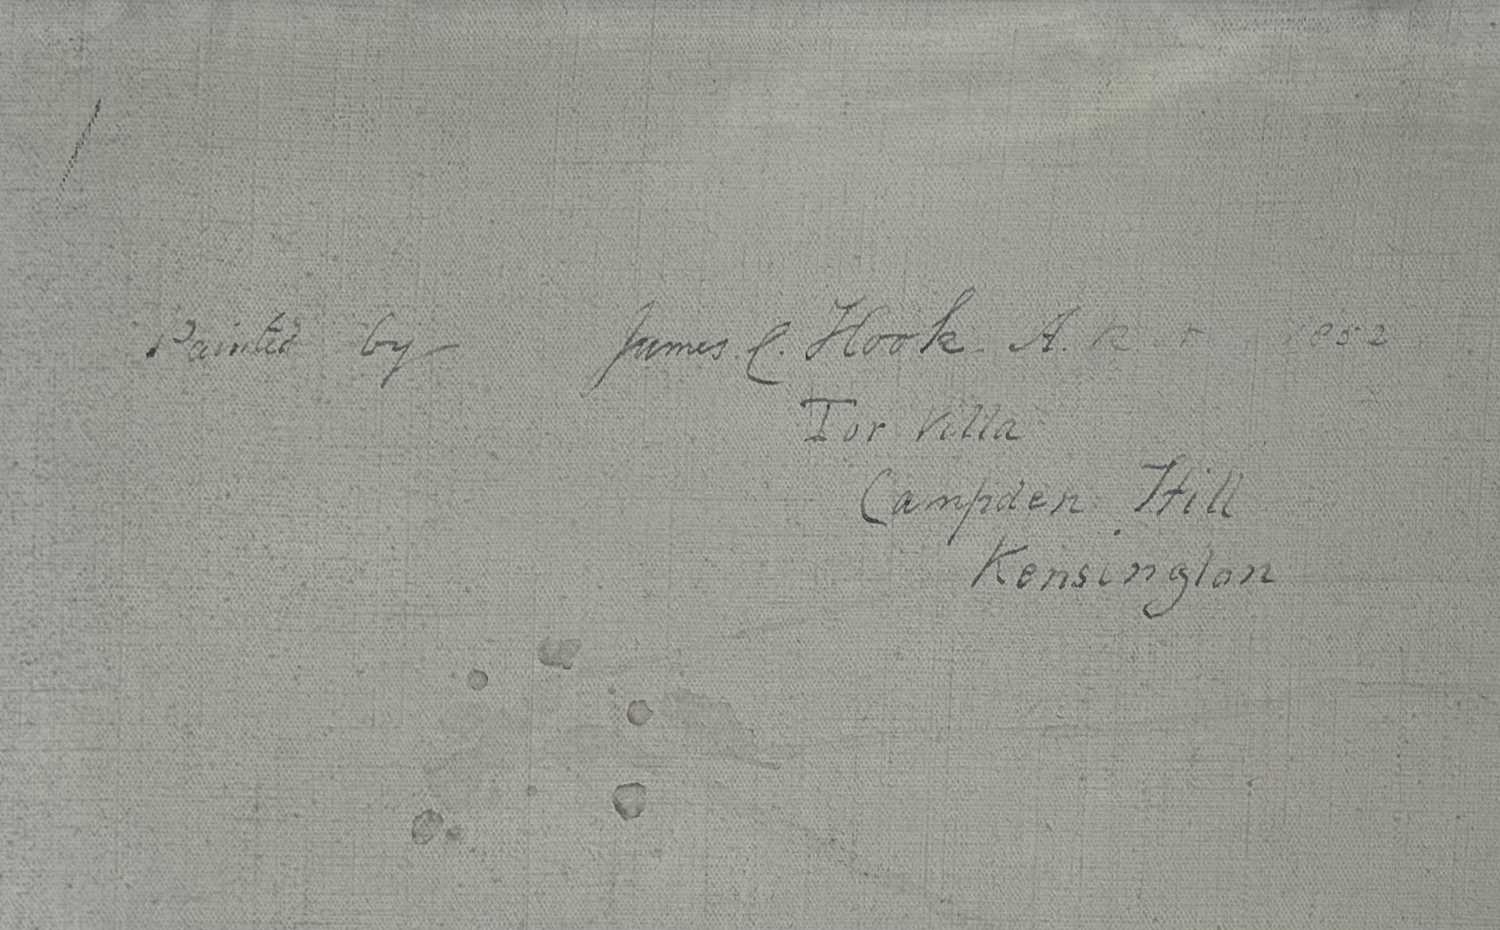 Painted by James C. Hook A. R. A. 1852
Tor Villa
Campden Hill
Kensington